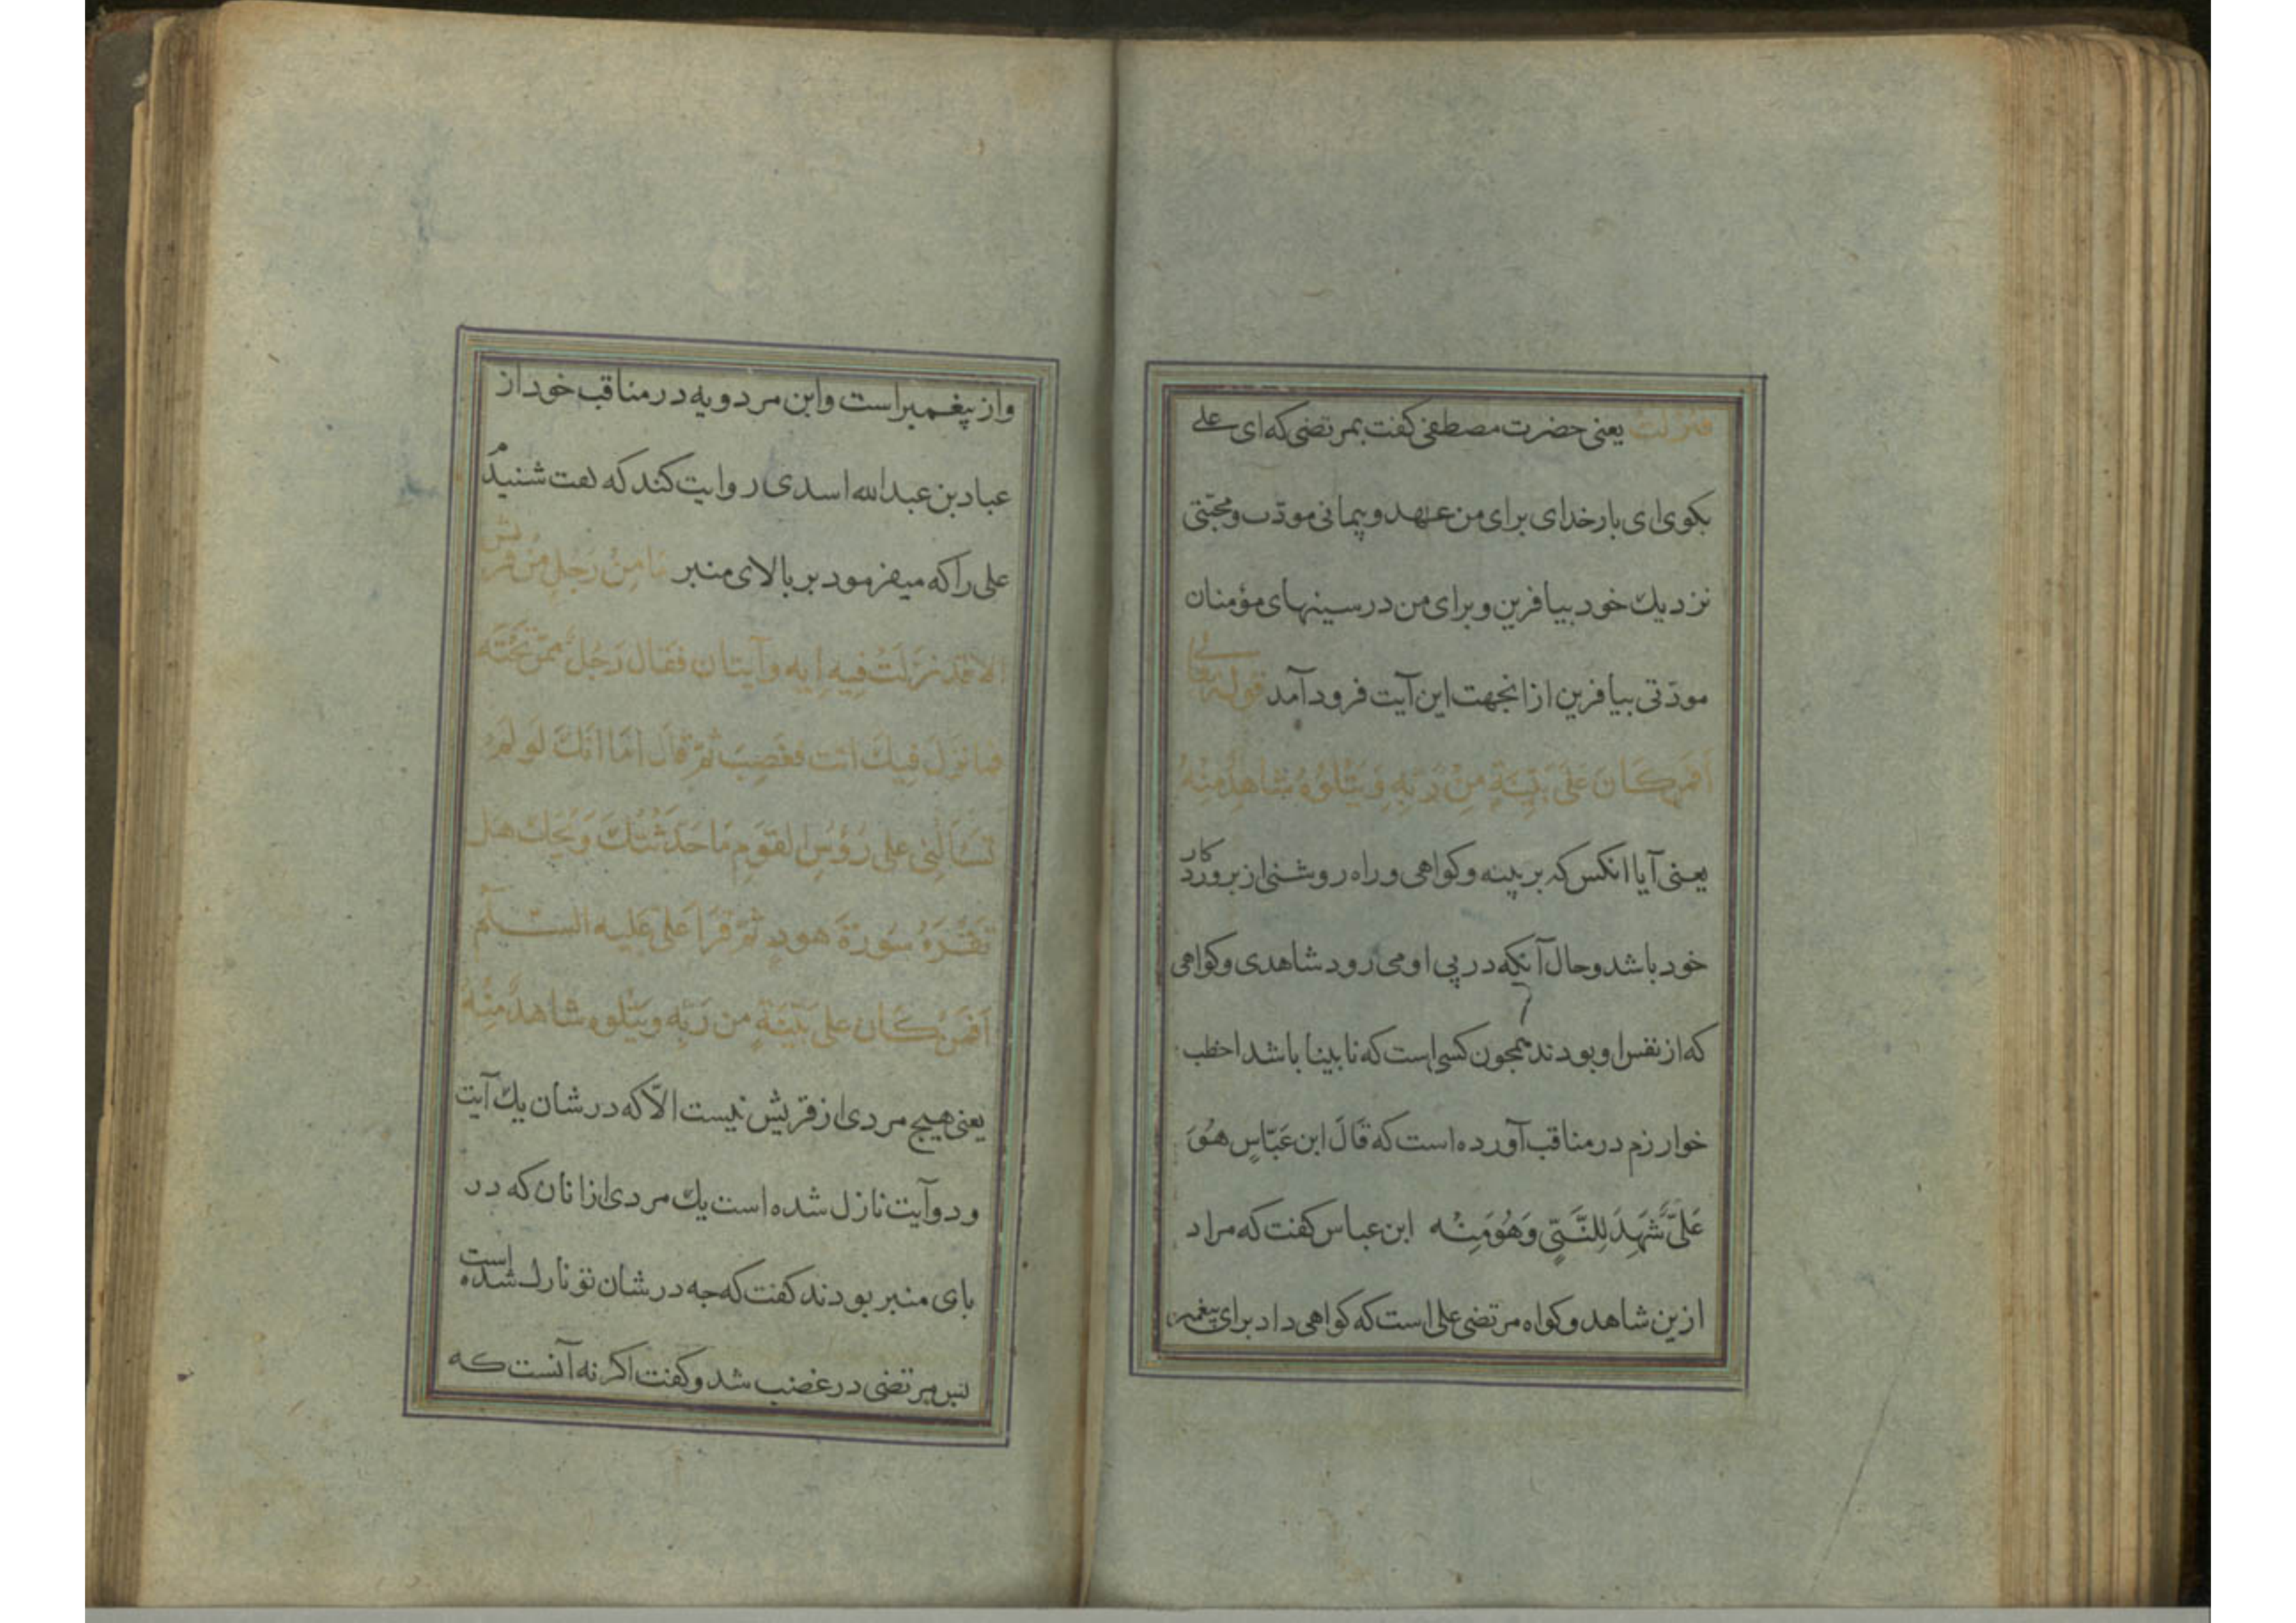 فنزلت یعنی حضرت مصطفی کفت بمرتضی که ای علی
بکوی ای بارخدای برای من عهد و پیمانی مودّت و محبّتی
نزدیك خود بیافرین و برای من در سینهای مؤمنان
مودّتی بیافرین ازانجهت این آیت فرود آمد قوله تعالی
اَفَمَن كَانَ عَلَى بَيِّنَةٍ مِنْ رَبِّهِ وَيَتْلُوهُ شَاهِدٌ مِنْهُ
یعنی آیا انکس که بر بینه و کواهی و راه روشنی از بروردکار
خود باشد و حال آنکه در پی او می رود شاهدی و کواهی
که از نفس او بودند همجون کسی است که نابینا باشد اخطب
خوارزم در مناقب آورده است که قَالَ ابن عَبّاسٍ هُوَ
عَلِيٌّ شَهِدَ لِلنَّبِيِّ وَهُوَمِنْه ابن عباس کفت که مراد
ازین شاهد و کواه مرتضی علی است که کواهی داد برای پیغمبر
و از پیغمبر است و ابن مردویه در مناقب خود از
عباد بن عبدالله اسدی روایت کند که کفت شنیدم
علی را که میفرمود بر بالای منبر مَا مِنْ رَجُلٍ مِنْ قریش
الا قَد نَزَلَتْ فِيهِ ایه وآیتان فَقَال رَجُلٌ مِمّن تَحْتَه
فما نَزَلَ فِيكَ انت فغَضِبَ ثمّ قال اَمَا انّكَ لَو لَم
تَسْاَلْنِی علی رُؤسِ القَومِ مَا حَدّثْتُكَ وَیحَك هَل
تَقْرَءُ سُورَةَ هودٍ ثمّ قَرَاَ علی عَلیه السّلم
اَفَمَنْ كَان علی بَیّنَةٍ من رَبِّهِ ویَتْلوه شاهدٌ مِنْهُ
یعنی هیج مردی از قریش نیست الّا که در شان یك آیت
و دو آیت نازل شده است یك مردی ازانان که در
بای منبر بودند کفت که جه در شان تو نازل شده است
بس مرتضی در غضب شد و کفت اکر نه آنست که